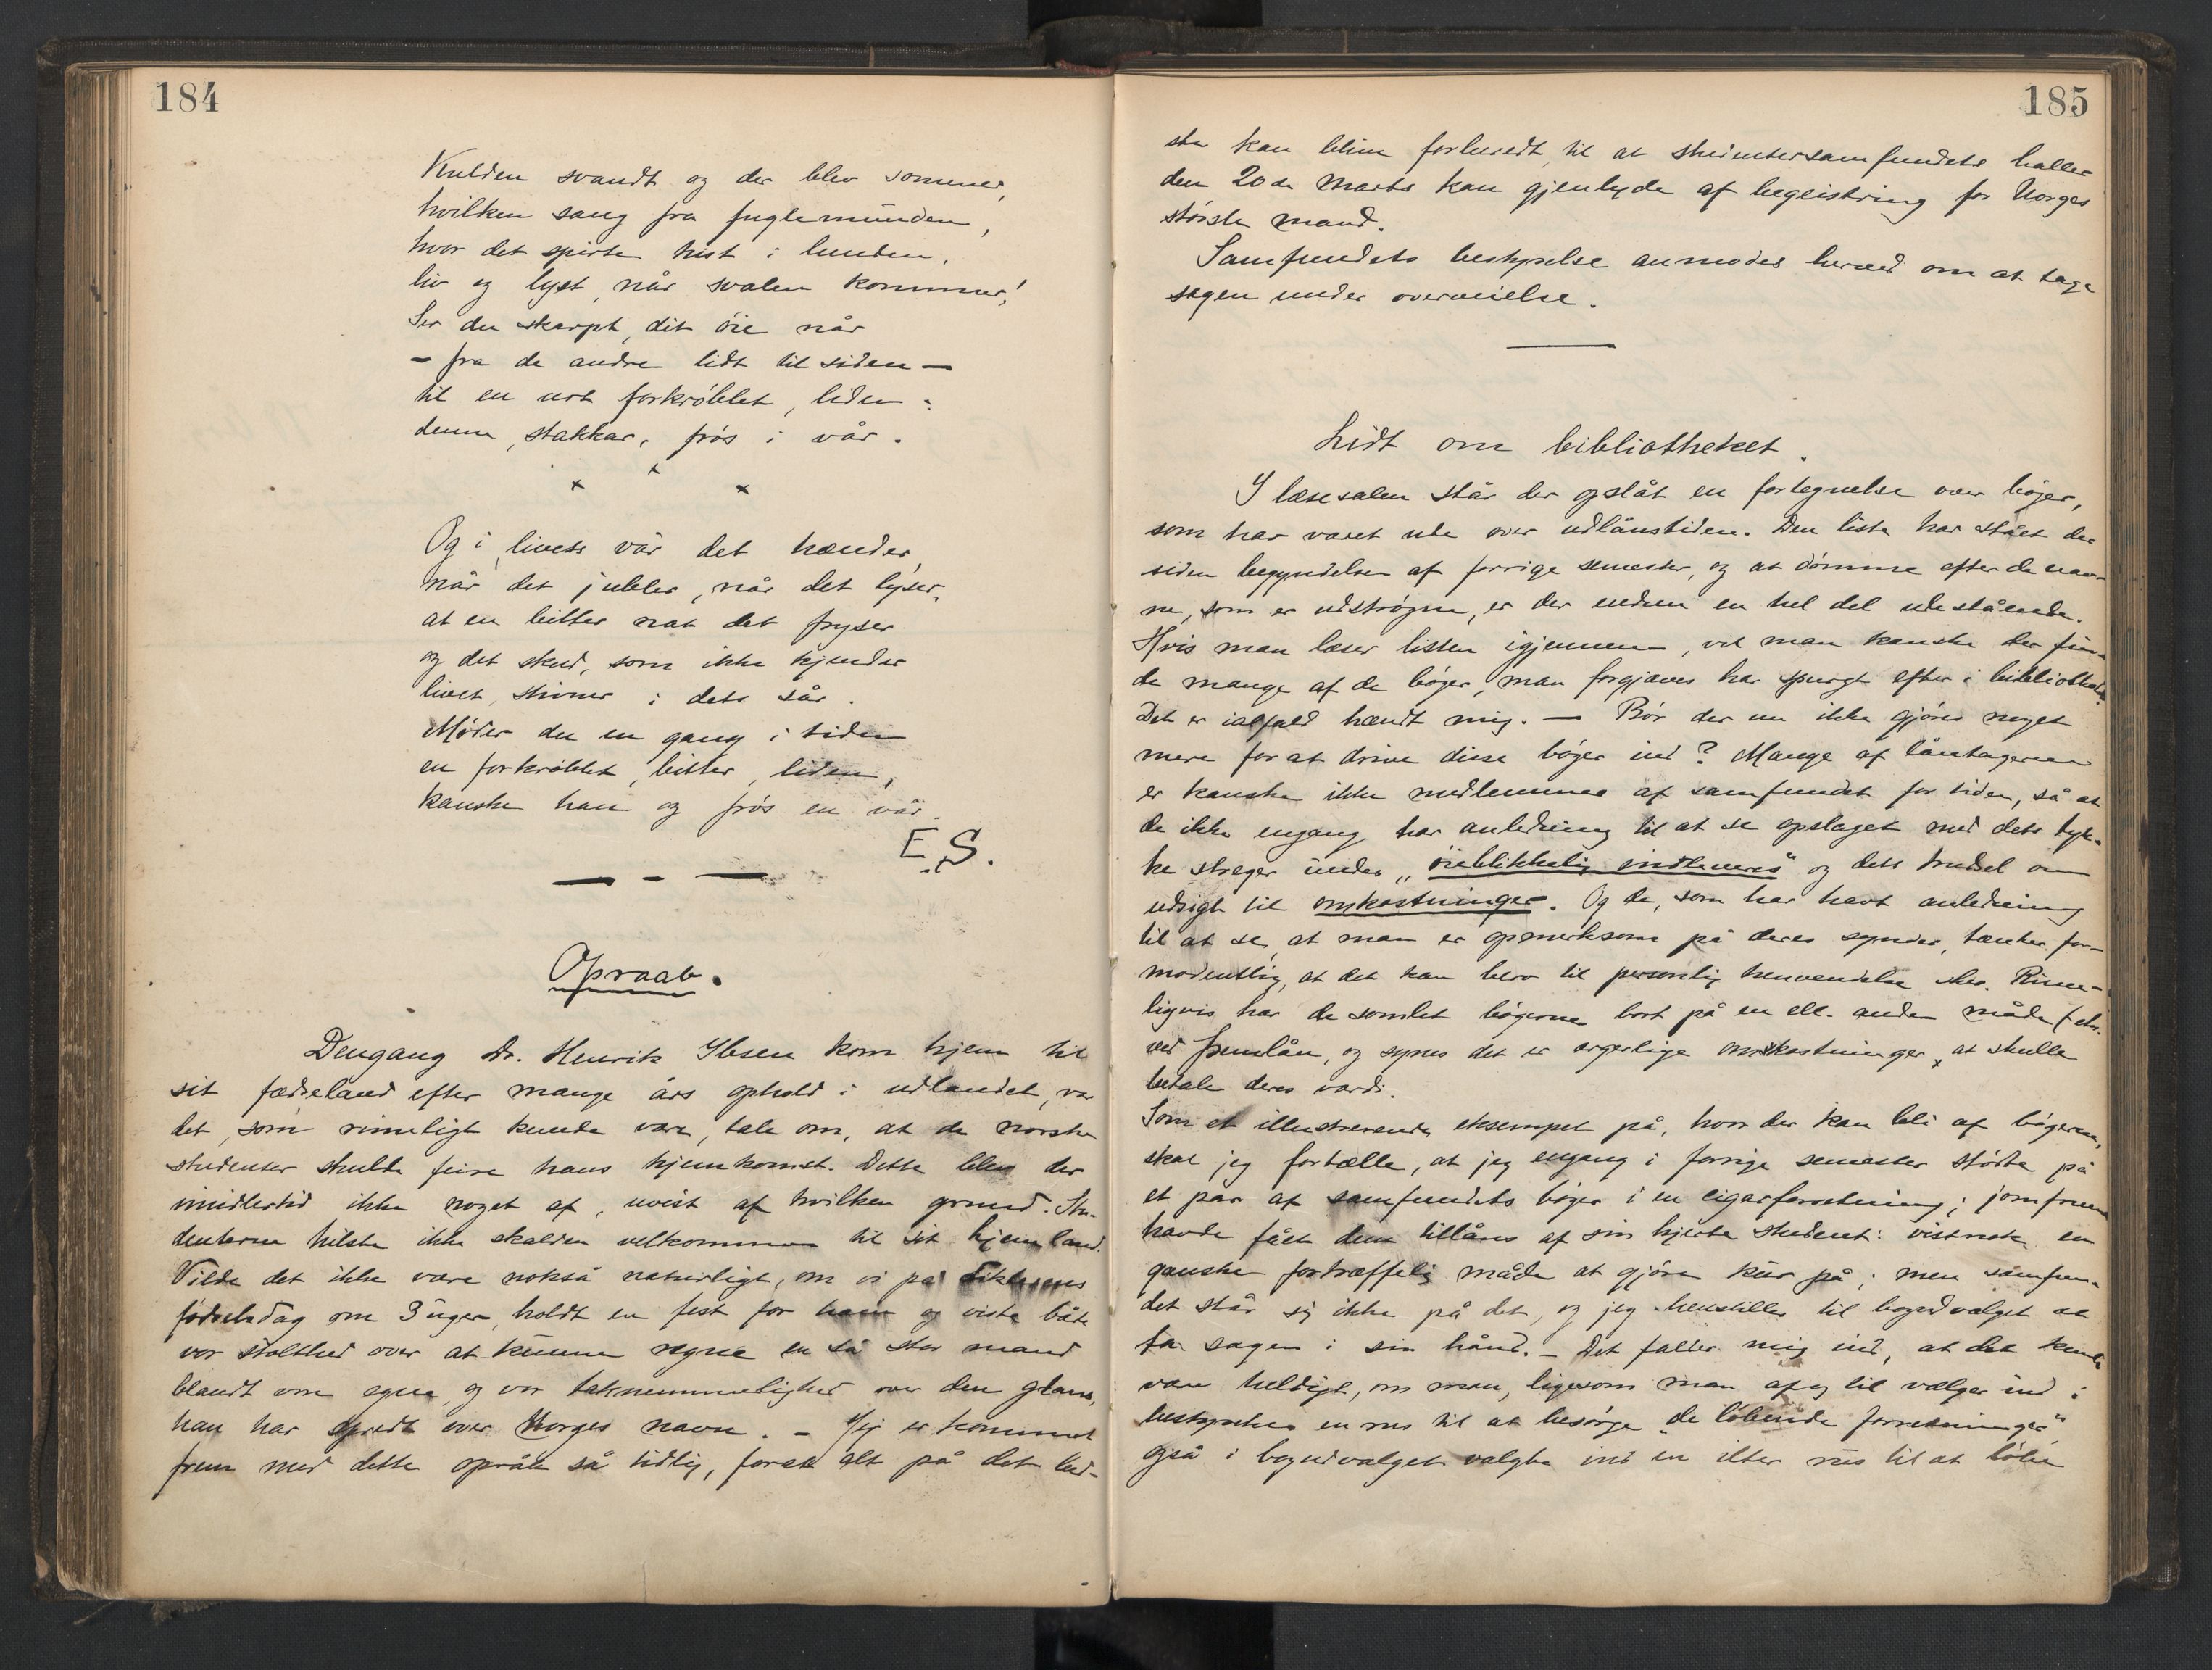 184
Kulden svandt og der blev sommer,
hvilken sang fra fuglemunden,
hvor det spirte hist i lunden,
liv og lyst, når svalen kommer!
Ser du skarpt, dit öie når
– fra de andre lidt til siden –
til en urt forkröblet, liden:
denne, stakkar, frös i vår.
x x x
Og i livets vår det hænder,
når det jubler, når det lyser,
at en bitter nat det fryser
og det skud, som ikke kjender
livet, stivner i dets sår.
Møder du en gang i tiden
en forkröblet, bitter, liden,
kanske han og frös en vår.
E. S.
Opraab.
Dengang Dr. Henrik Ibsen kom hjem til
sit fædreland efter mange års ophold i udlandet, var
det, som rimeligt kunde være, tale om, at de norske
studenter skulde feire hans hjemkomst. Dette blev der
imidlertid ikke noget af, uvist af hvilken grund. Stu-
denterne hilste ikke skalden velkommen til sit hjemland.
Vilde det ikke være nokså naturligt, om vi på dikterens
fødselsdag om 3 uger holdt en fest for ham og viste både
vor stolthed over at kunne regne en så stor mand
blandt vore egne, og vor taknemmelighed over den glans,
han har spredt over Norges navn. – Jeg er kommet
frem med dette opråb så tidlig, forat alt på det bed-
185
ste kan blive forberedt til at studentersamfundets haller
den 20de Marts kan gjenlyde af begeistring for Norges
störste mand.
Samfundets bestyrelse anmodes herved om at tage
sagen under overveielse.
Lidt om bibliotheket.
I læsesalen står der opslåt en fortegnelse over böger,
som har været ude over udlånstiden. Den liste har stået der
siden begyndelsen af forrige semester, og at dömme efter de nav-
ne, som er udströgne, er der endnu en hel del udestående.
Hvis man læser listen igjennem, vil man kanske der fin-
de mange af de böger, man forgjæves har spurgt efter i bibliotheket.
Det er ialfald hændt mig. – Bör der nu ikke gjöres noget
mere for at drive disse böger ind? Mange af låntagerne
er kanske ikke medlemmer af samfundet for tiden, så at
de ikke engang har anledning til at se opslaget med dets tyk-
ke streger under „öieblikkelig indleveres" og dets trudsel om
udsigt til omkostninger. Og de, som har havt anledning
til at se, at man er opmerksom på deres synder, tænker for-
modentlig, at det kan bero til personlig henvendelse sker. Rime-
ligvis har de somlet bögerne bort på en ell. anden måde f. eks.
ved fremlån, og synes det er ærgerlige omkostninger, at skulle
betale deres værdi.
Som et illustrerende eksempel på, hvor der kan bli af bögerne,
skal jeg fortælle, at jeg engang i forrige semester stödte på
et par af samfundets böger i en cigarforretning; jomfruen
havde fået dem tillåns af sin hjerte student: vistnok en
ganske fortræffelig måde at gjöre kur på; men samfun-
det står sig ikke på det, og jeg henstiller til bogudvalget at
ta sagen i sin hånd. – Det falder mig ind, at det kunde
være heldigt, om man, ligesom man af og til vælger ind i
bestyrelsen en rus til at besörge „de löbende forretninger"
også i bogudvalget valgte ind en ilter rus til at löbe